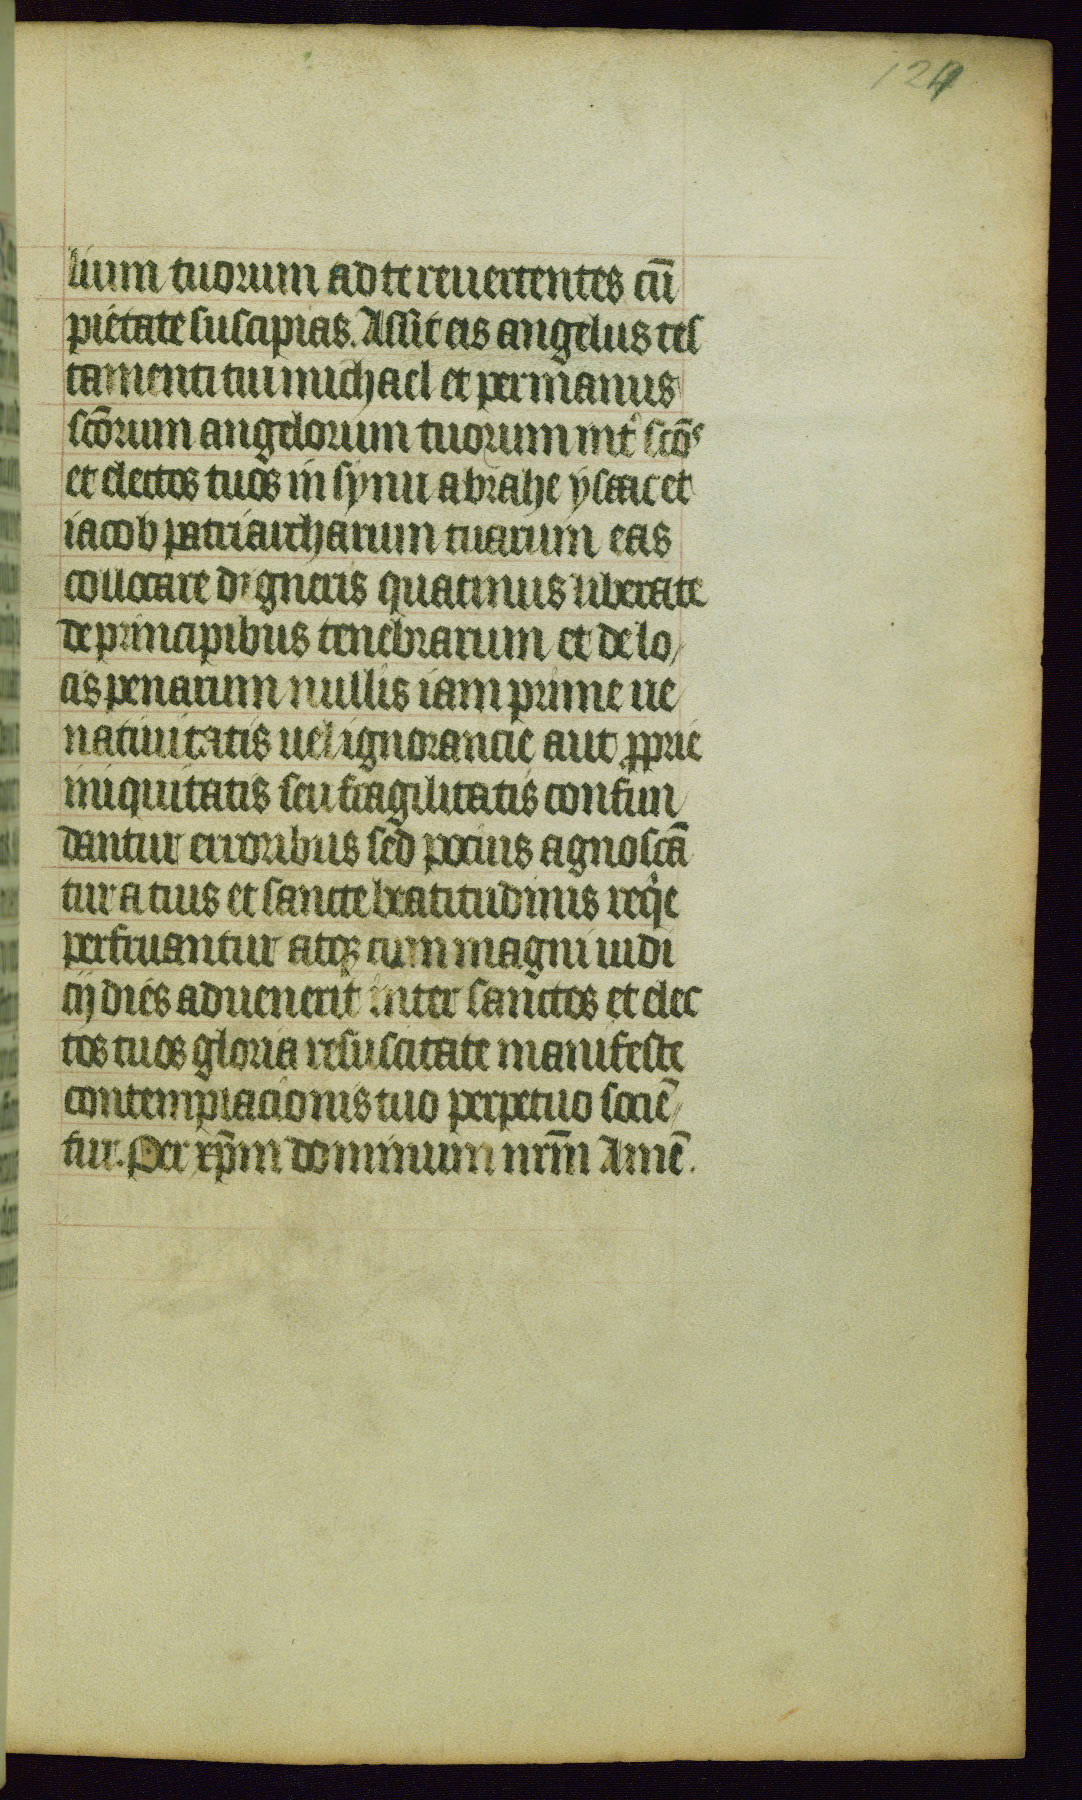 124
lium tuorum ad te reuertentes cū
pietate suscipias. Assit eis angelus tes
tamenti tui michael et per manus
scōrum angelorum tuorum int̉ scōs
et electos tuos in synu abrahe ysaac et
iacob patriarcharum tuarum eas
collocare digneris quatinus liberate
de principibus tenebrarum et de lo
cis penarum nullis iam prime ue
natiuitatis uel ignorancie aut ꝓprie
iniquitatis seu fragilitatis confun
dantur erroribus sed pocius agnoscā
tur a tuis et sancte beatitudinis reqͥe
perfruantur atqꝫ cum magni iudi
cij dies aduenerit inter sanctos et elec
tos tuos gloria resuscitate manifeste
contemplacionis tuo perpetuo socië
tur. Per xp̄m dominum nrm̄ Amē.